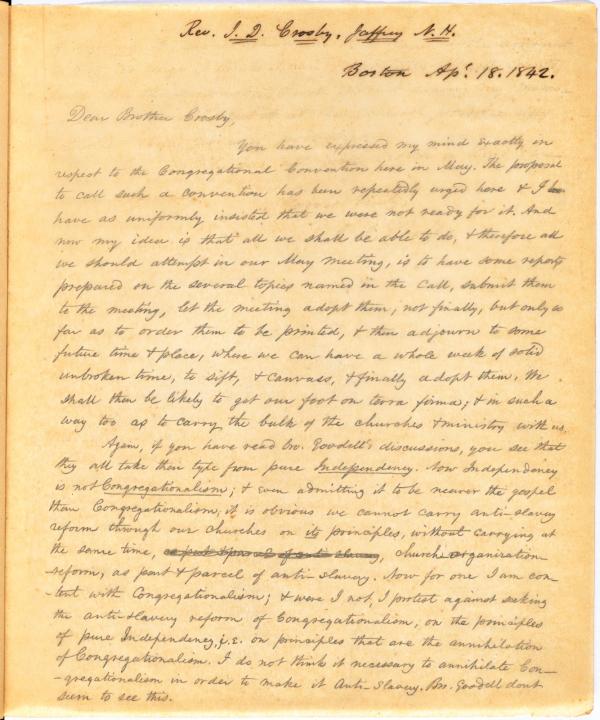 Rev. J. D. Crosby, Jaffrey N. H.
Boston Apl. 18. 1842.
Dear Brother Crosby,
You have expressed my mind exactly in
respect to the Congregational Convention here in May. The proposal
to call such a convention has been repeatedly urged here & I
have as uniformly insisted that we were not ready for it. And
now my idea is that all we shall be able to do, & therefore all
we should attempt in our May meeting, is to have some reports
prepared on the several topics named in the call, submit them
to the meeting, let the meeting adopt them, not finally, but only so
far as to order them to be printed, & then adjourn to some
future time & place, where we can have a whole week of solid
unbroken time, to sift, & canvass, & finally adopt them. We
shall then be likely to get our foot on terra firma; & in such a
way too as to carry the bulk of the churches & ministry with us.
Again, if you have read bro. Goodell's discussions, you see that
they all take their type from pure Independency. Now Independency
is not Congregationalism; & even admitting it to be nearer the gospel
than Congregationalism, it is obvious we cannot carry anti-slavery
reform through our churches on its principles, without carrying at
the same time, as part & parcel of anti slavery, church organization
reform, as part & parcel of anti-slavery. Now for one I am con-
-tent with Congregationalism; & were I not, I protest against seeking
the anti-slavery reform of Congregationalism, on the principles
of pure Independency, i.e. on principles that are the annihilation
of Congregationalism. I do not think it necessary to annihilate Con-
-gregationalism in order to make it Anti-Slavery. Bro. Goodell dont
seem to see this.